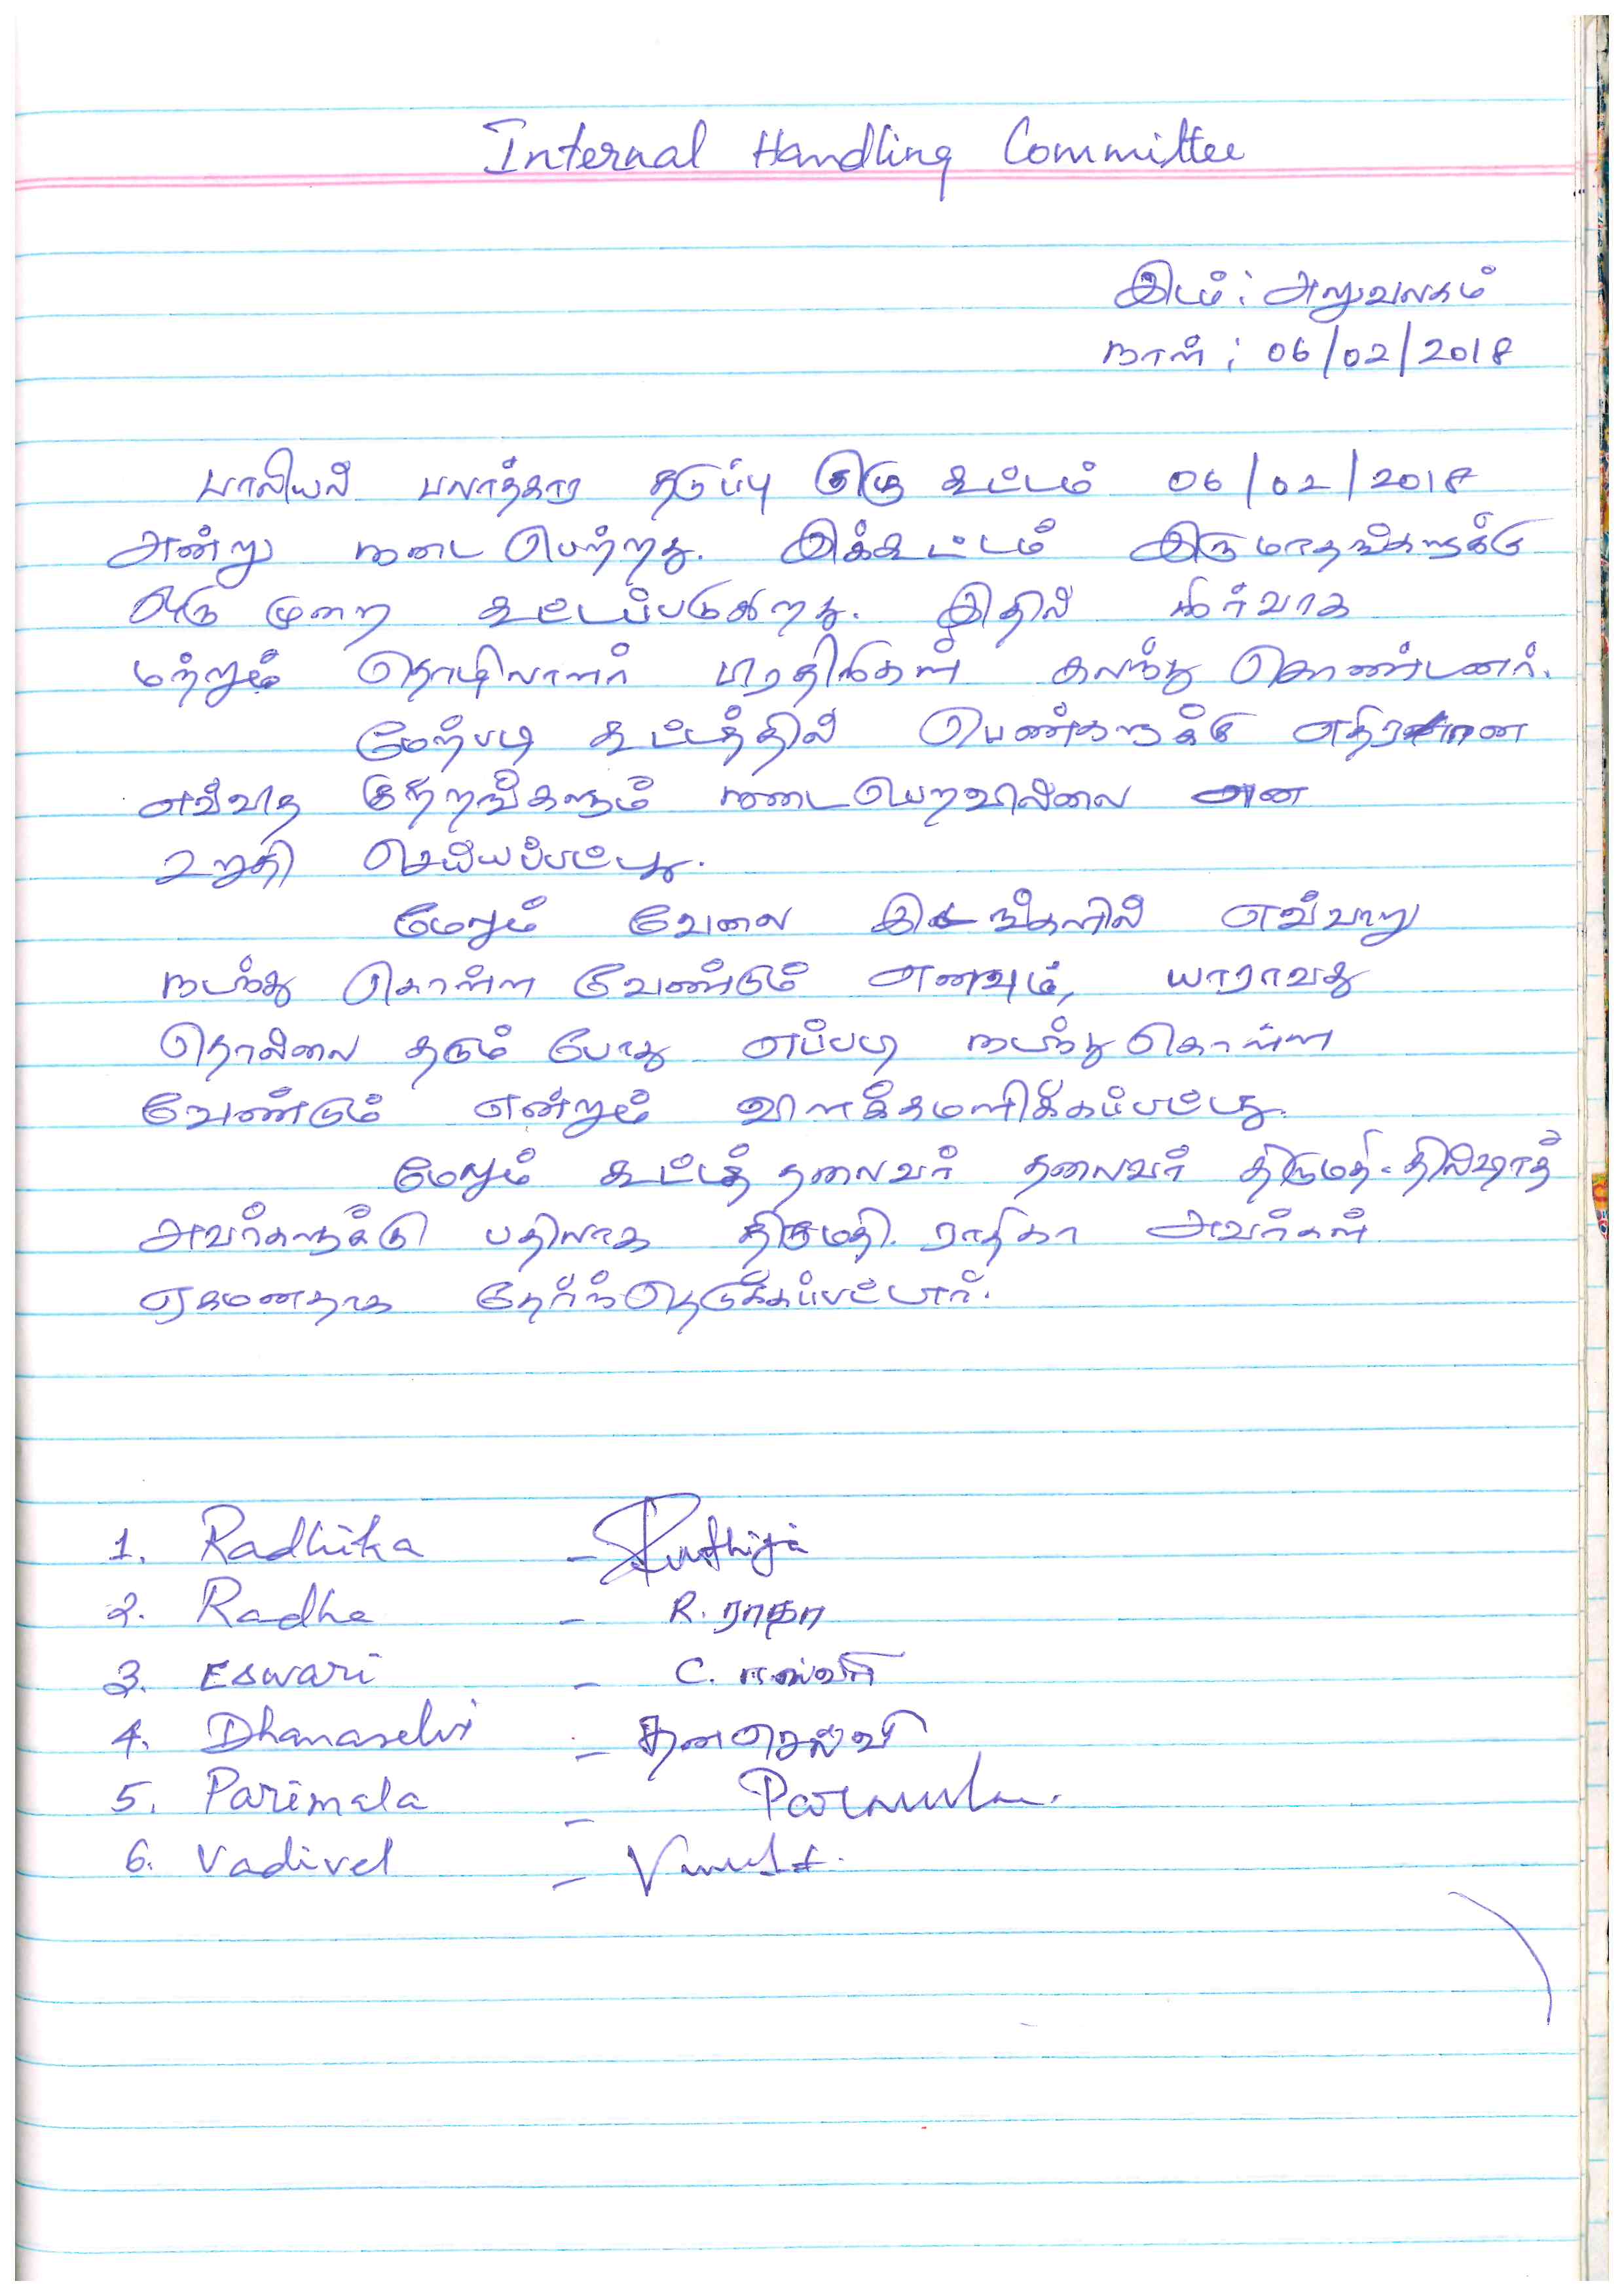 Internal Handling Committee
இடம் : அலுவலகம்
நாள் : 06/02/2018
பாலியல் பலாத்கார தடுப்பு குழு கூட்டம் 06/02/2018
அன்று நடைபெற்றது. இக்கூட்டம் இரு மாதங்களுக்கு
ஒரு முறை கூட்டப்படுகிறது. இதில் நிர்வாக
மற்றும் தொழிலாளர் பிரதிநிகள் கலந்து கொண்டனர்.
மேற்படி கூட்டத்தில் பெண்களுக்கு எதிரான
எவ்வித குற்றங்களும் நடைபெறவில்லை என
உறுதி செய்யப்பட்டது.
மேலும் வேலை இடங்களில் எவ்வாறு
நடந்து கொள்ள வேண்டும் எனவும், யாராவது
தொல்லை தரும் போது எப்படி நடந்து கொள்ள
வேண்டும் என்றும் விளக்கமளிக்கப்பட்டது.
மேலும் கூட்டத் தலைவர் தலைவர் திருமதி. தில்ஷாத்
அவர்களுக்கு பதிலாக திருமதி. ராதிகா அவர்கள்
ஏகமனதாக தேர்ந்தெடுக்கப்பட்டார்.
1. Radhika -
2. Radha - R. ராதா
3. Eswari - C. ஈஸ்வரி
4. Dhanaselvi - தனசெல்வி
5. Parimala - Parimala.
6. Vadivel -